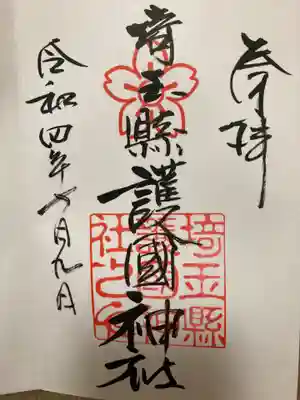 奉拝
埼玉縣護國神社
令和四年七月九日
埼玉縣
護國神
社之印